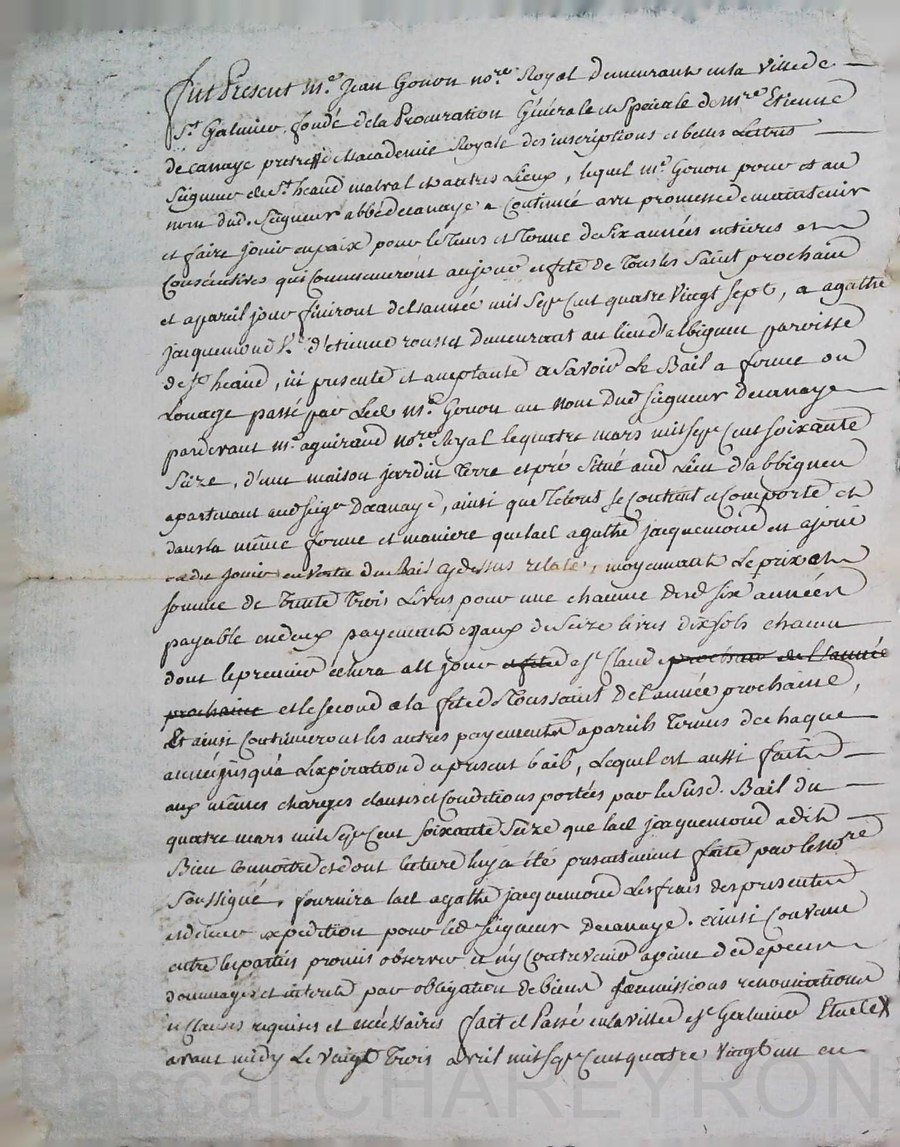 Fut Present m.e Jean Gonon no.re Royal demeurant en la Ville de
S.t Galmier, fondé de la Procuration Générale et Speciale de m.re Etienne
de canaye pretre de l'academie Royale des inscriptions et belles Lettres
Seigneur de S.t heand malval et autres Lieux, lequel m.e Gonon pour et au
nom dud. Seigneur abbé de canaye a Continué avec promesse de maintenir
et faire jouir en paix pour le tems et terme de Six années entieres et
Consécutives qui Commenceront au jour et fete de Tous les Saint prochain
et a pareil jour finiront de l'année mil Sept Cent quatre Vingt Sept, a agathe
jacquemond V.e d'etienne rousset demeurant au lieu d'albigneu paroisse
de S.t heand, ici presente et acceptante a Savoir Le Bail a ferme ou
Louage passé par Led. m.e Gonon au nom Dud Seigneur de canaye
pardevant m.e aguiraud no.re Royal le quatre mars mil Sept Cent Soixante
Seize, d'une maison jardin terre et pré Situé aud Lieu d'albigneu
apartenant aud Seig.r De canaye, ainsi que le tout Se Contient et Comporte et
dans la même forme et maniere que lad. agathe jacquemond en a joui
ou du jouir en vertu du Bail cy dessus relaté, moyennant Le prix et
Somme de Trente Trois Livres pour une chacune desd Six années
payable en deux payements egaux de Seize livres dix Sols chacun
dont le premier echera au jour et fete de S.t Claude prochain de l'année
prochaine et le Second a la fete de Toussaint De l'année prochaine,
Et ainsi Continueront les autres payements a pareils Termes de chaque
année jusqu'à L'expiration du present bail, Lequel est aussi fait
aux mêmes charges clauses et Conditions portées par le Susd. Bail du
quatre mars mil Sept Cent Soixante Seize que lad jacquemond a dit
Bien Connoitre et dont lecture luy a été presentement faite par le No.re
Soussigné, fournira lad agathe jacquemond Les frais des presentes
et de leur expedition pour led Seigneur De canaye. ainsi Convenu
entre les parties promis observer et n'y Contrevenir a peine de depens
dommages et interets par obligation de biens Soumissions renonciations
et Clauses requises et nécéssaires fait et Passé en la Ville de S.t Galmier Etude
avant midy Le Vingt Trois avril mil Sept Cent quatre Vingt un en
Pascal CHAREYRON